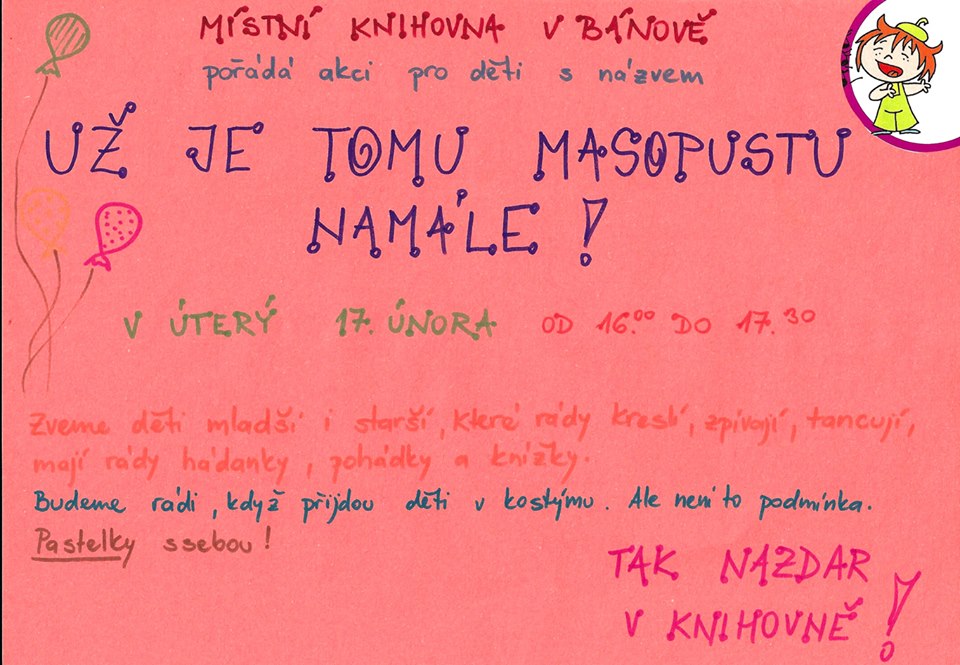 MÍSTNÍ KNIHOVNA V BÁNOVĚ
pořádá akci pro děti s názvem
UŽ JE TOMU MASOPUSTU
NAMÁLE!
V ÚTERÝ 17. ÚNORA OD 16.00 DO 17.30
Zveme děti mladší i starší, které rády kreslí, zpívají, tancují,
mají rády hádanky, pohádky a knížky.
Budeme rádi, když přijdou děti v kostýmu. Ale není to podmínka.
Pastelky ssebou!
TAK NAZDAR
V KNIHOVNĚ!